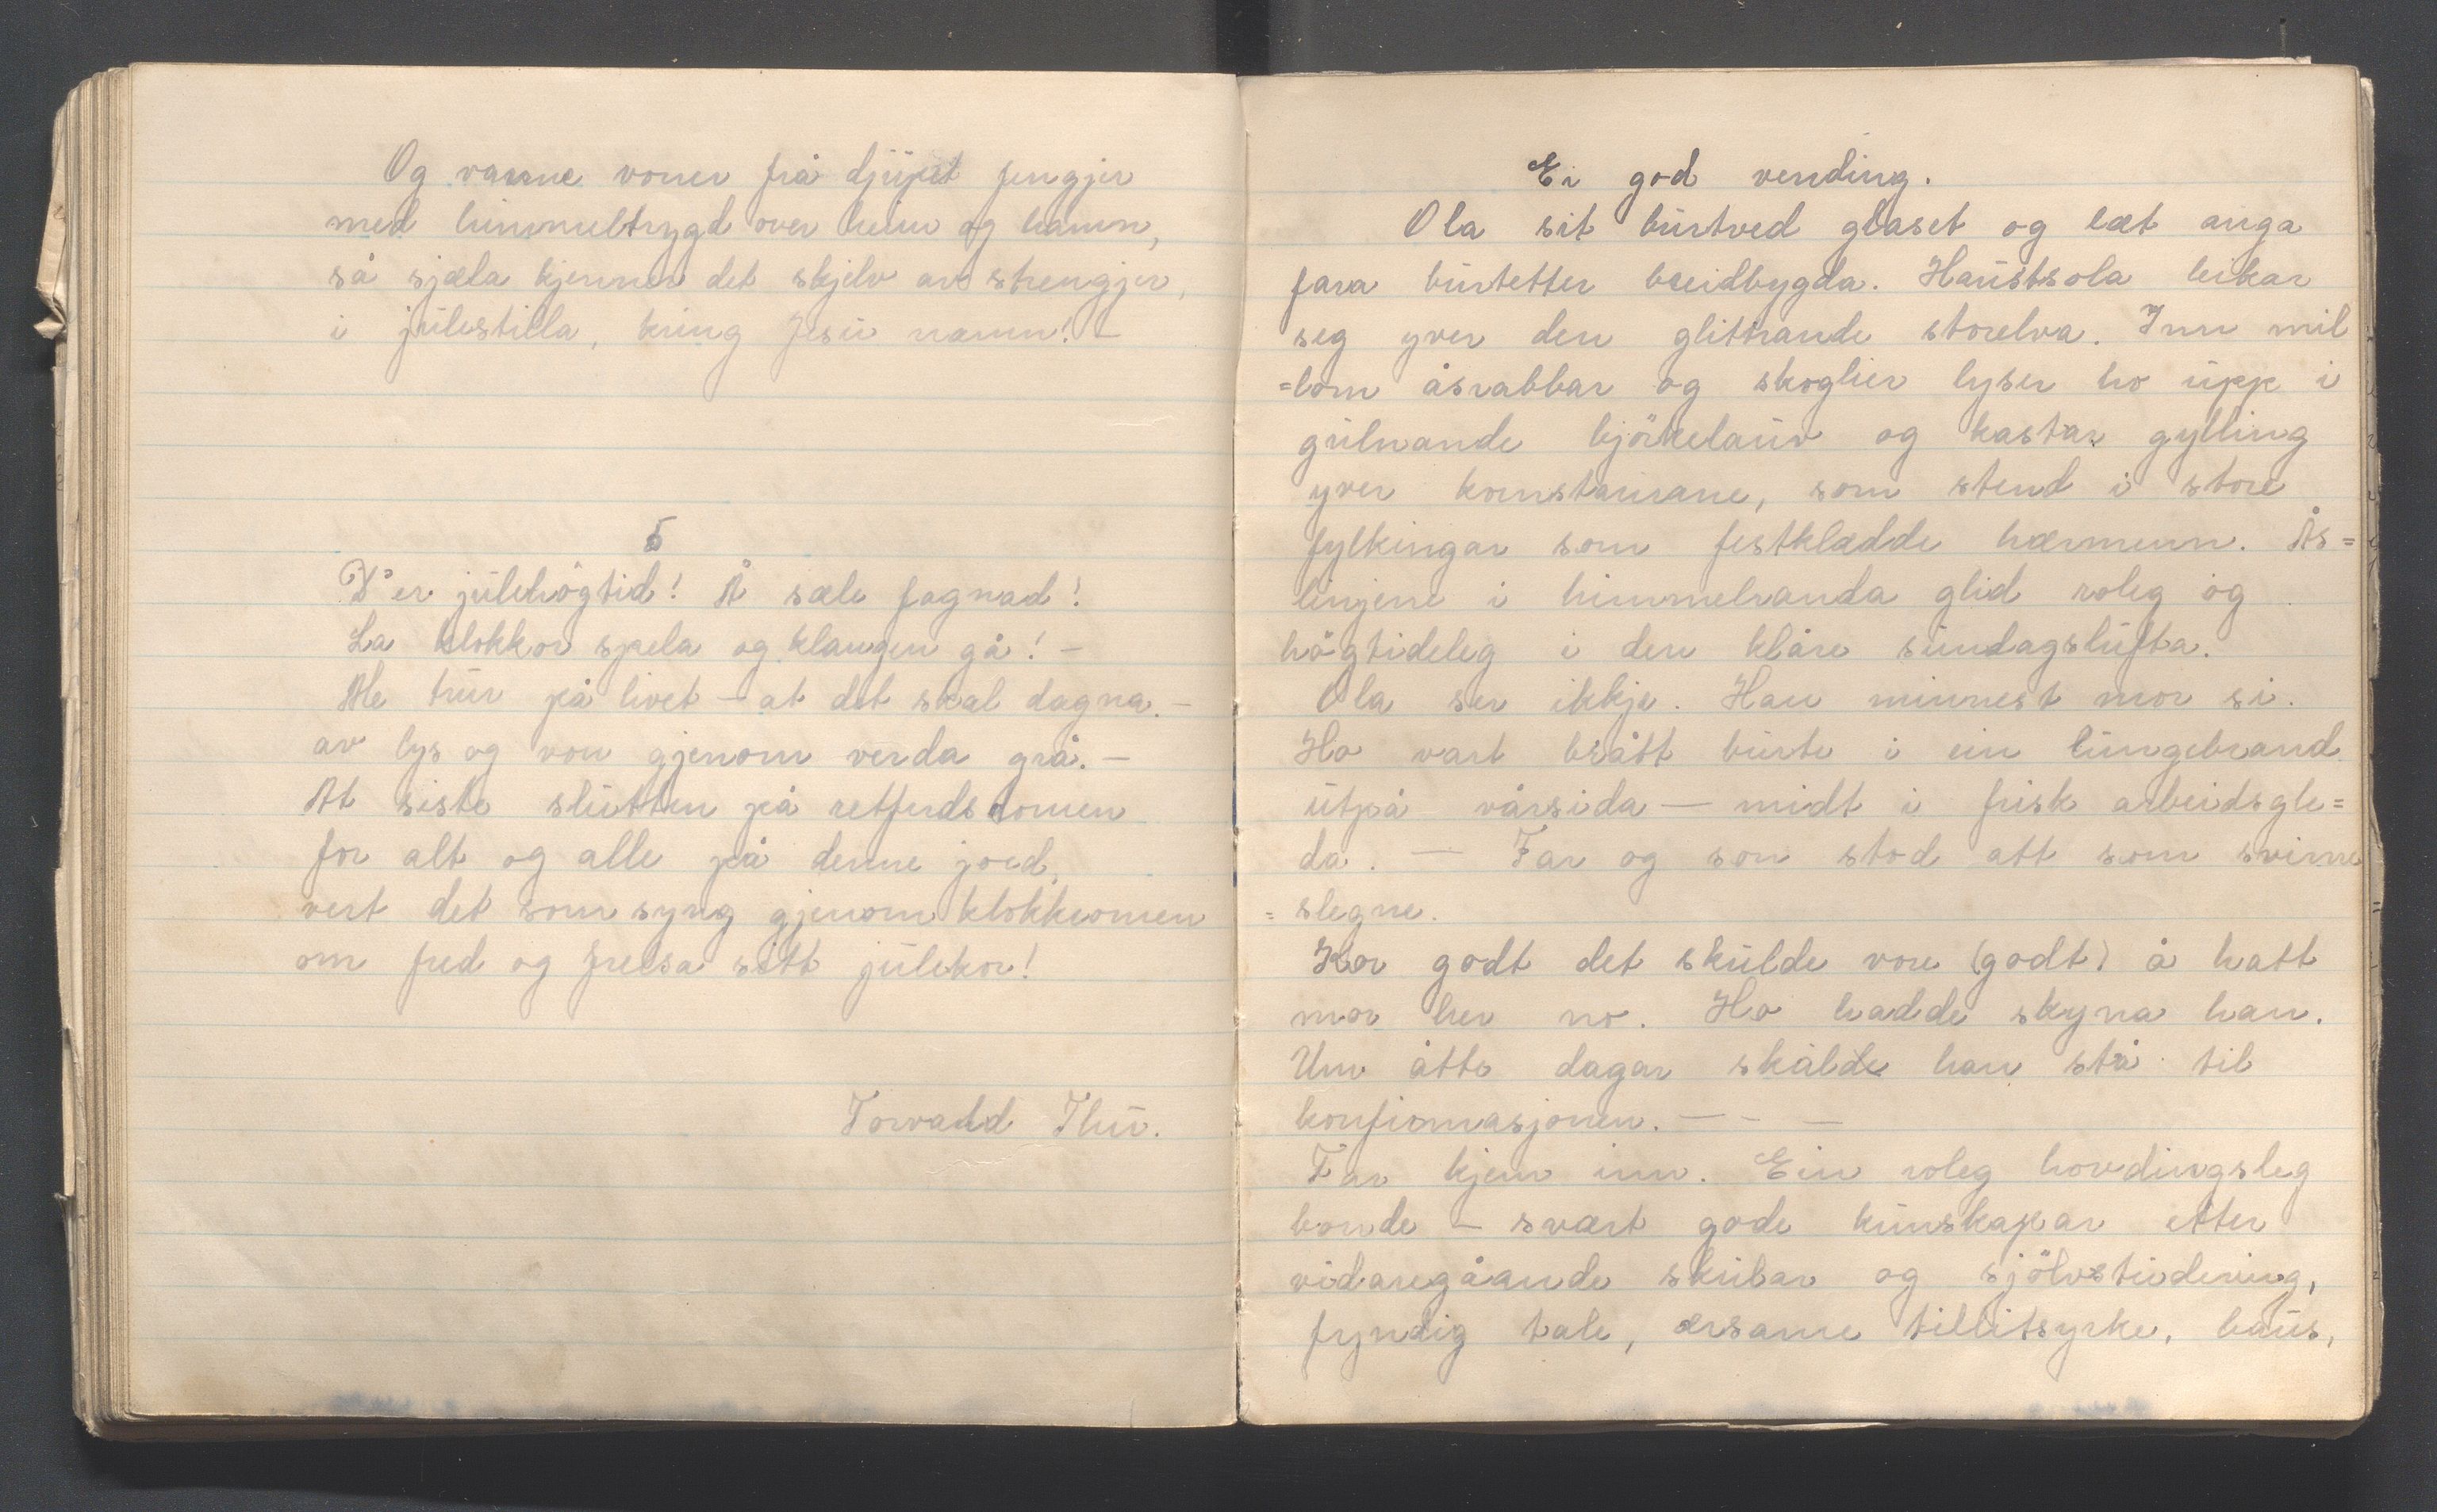 Og varme voner frå djúpet fengjer
med himmeltrygd over heim og hamn,
så sjæla kjenner det skjelv av strengjer,
i júlestilla, kring Jesú namn! -
5
D'er júlehögtid! Å sæle fagnad!
La klokkor spela og klangen gå! -
Me trúr på livet - at det skal dagna -
av lys og von gjenom verda grå. -
At siste slútten på retferdsdomen
for alt og alle på denne jord,
vert det som syng gjenom klokkeomen
om fred og frelsa sitt júlekor!
Torvald Thú.
Ei god vending.
Ola sit búrtved glaset og læt auga
fara búrtetter breidbygda. Haústsola leikar
seg yver den glittrande storelva. Inn mil
=lom åsrabbar og skoglier lyser ho úpp i
gúlnande björkelaúv og kastar gylling
yver kornstaúrane, som stend i store
fylkingar som festklædde hærmenn. Ås=
linjene i himmelranda glid roleg og
högtideleg i den klåre súndagslúfta.
Ola ser ikkje. Han minnest mor si.
Ho vart brått búrte i ein lúngebrand
útpå vårsida — midt i frisk arbeidsgle=
da. — Far og son stod att som svime
=slegne.
Kor godt det skúlde vore (godt) å hatt
mor her no. Ho hadde skyna han.
Um åtte dagar skulde han stå til
konfirmasjonen. — - —
Far kjem inn. Ein roleg hovdingsleg
bonde - svært gode kúnskapar etter
vidaregåande skúlar og sjölvstúdering,
fyndig tale, ærsame tillitsyrke, baús,